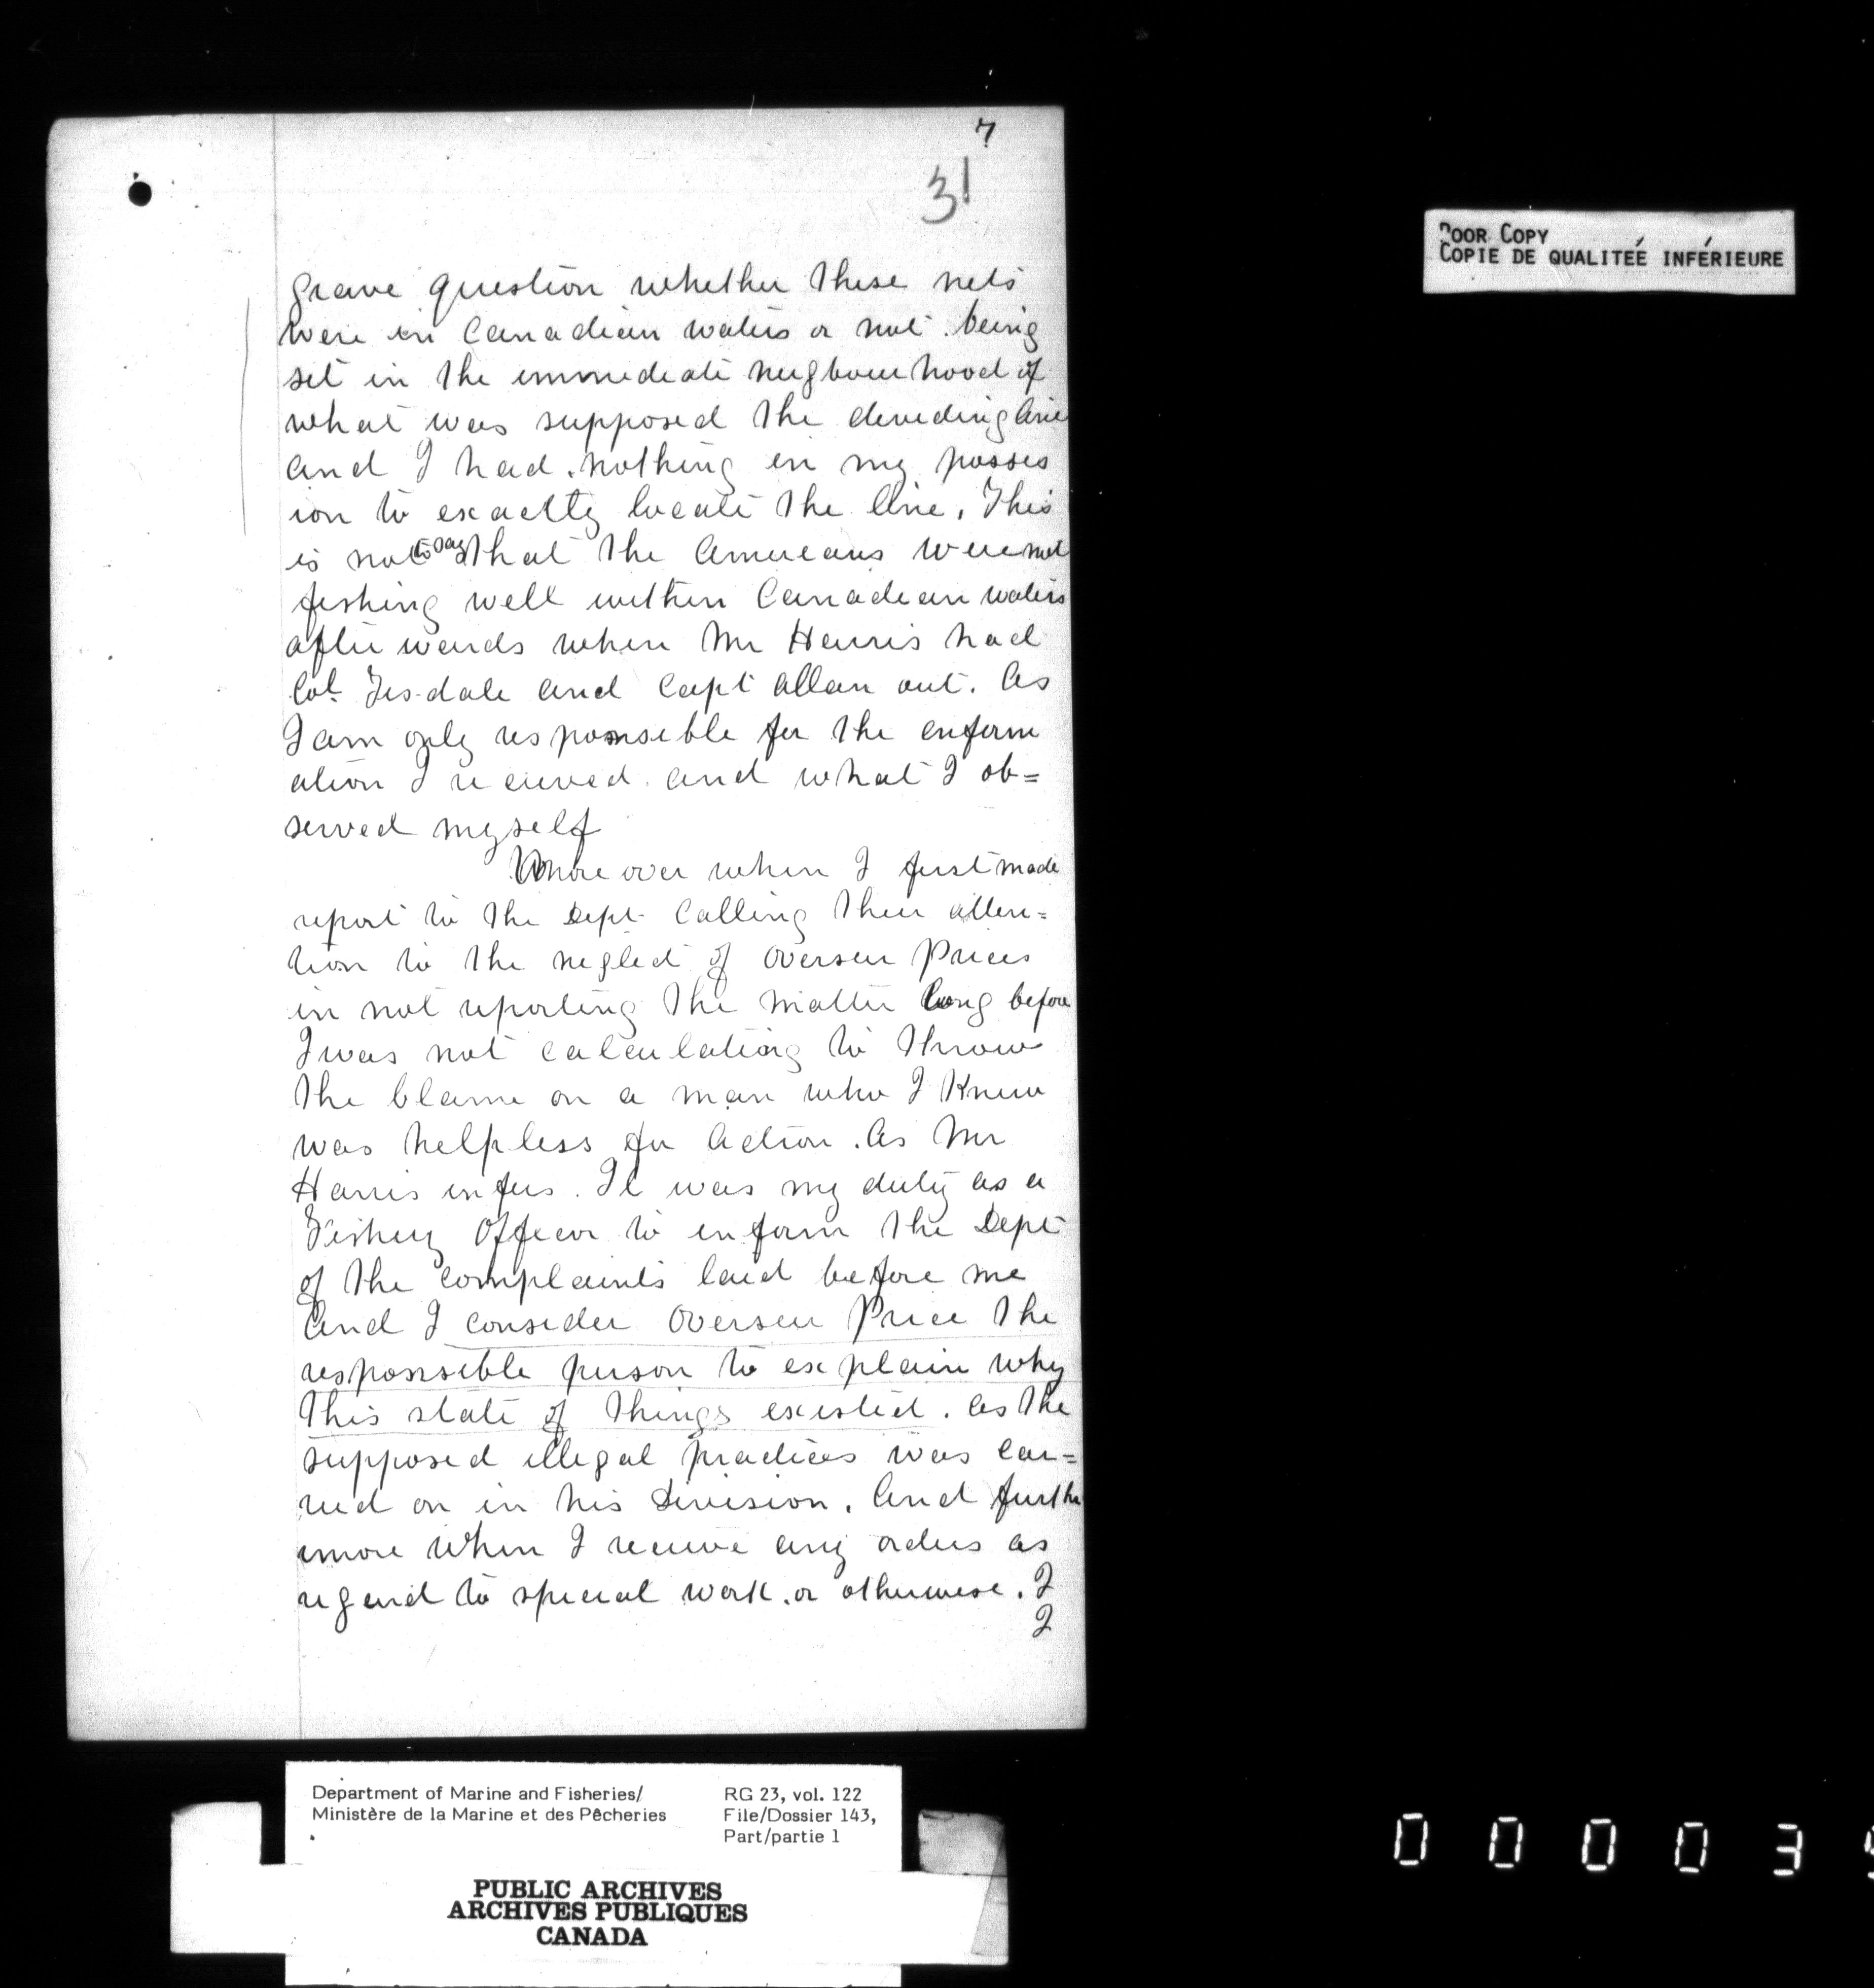 7
31
POOR COPY
COPIE DE QUALITEÉ INFÉRIEURE
grave question whether these nets
were in Canadian waters or not. being
set in the immediate neigbourhood of
what was supposed the deviding line
and I had nothing in my posses
ion to exactly locate the line. This
is not to say that the Amercans were not
fishing well within Canadian waters
afterwards when Mr Harris had
Col. Tisdale and Capt Allan out. As
I am only responsible for the inform
ation I received and what I ob=
served myself
Moreover when I first made
report to the Dept calling their atten=
tion to the neglect of Overseer Prices
in not reporting the matter long before
I was not calculating to throw
the blame on a man who I knew
was helpless for action. As Mr
Harris infers. It was my duty as a
Fishery Officer to inform the Dept
of the complaints laid before me
and I consider Overseer Price the
responsible person to explain why
this state of things existed. as the
supposed illegal practices was car=
ried on in his Division. And further
more when I receive any orders as
regard to special work. or otherwise. I
I
Department of Marine and Fisheries/
Ministère de la Marine et des Pêcheries
RG 23, vol. 122
File/Dossier 143,
Part/partie 1
PUBLIC ARCHIVES
ARCHIVES PUBLIQUES
CANADA
0 0 0 0 3